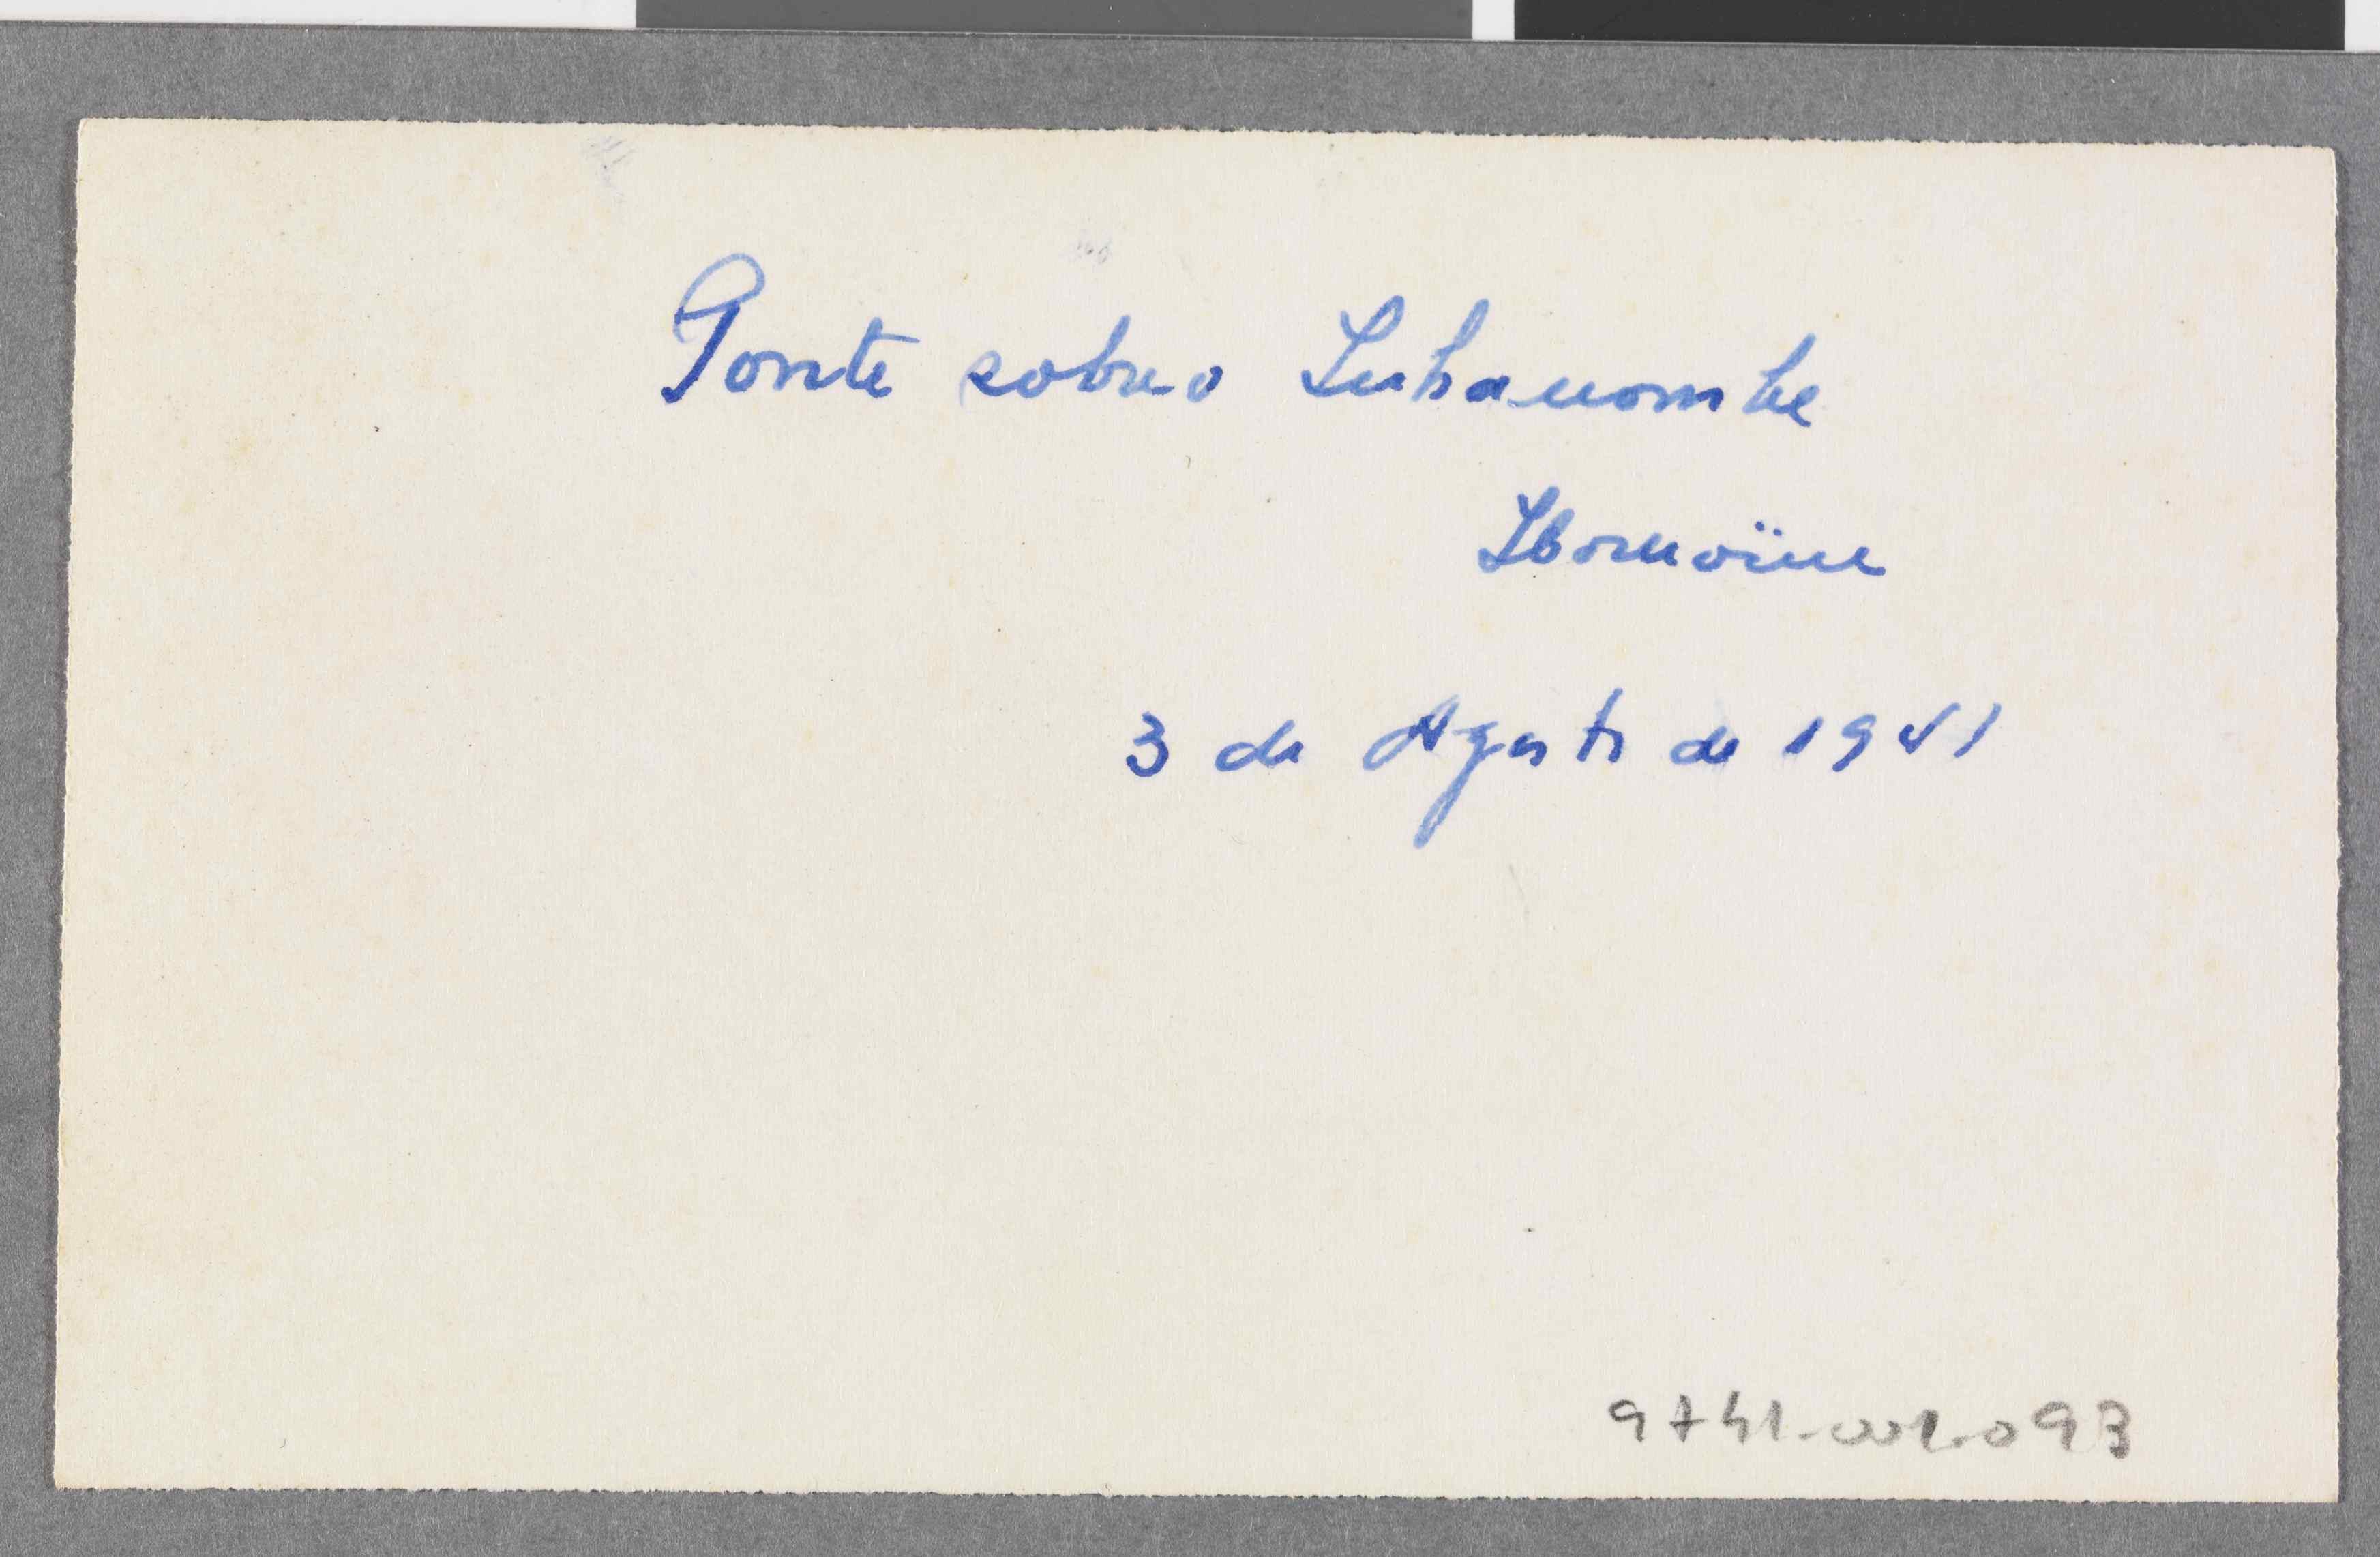 Ponte sobre o
Homoíne
3 de Agosto de 1941
9741-001-093